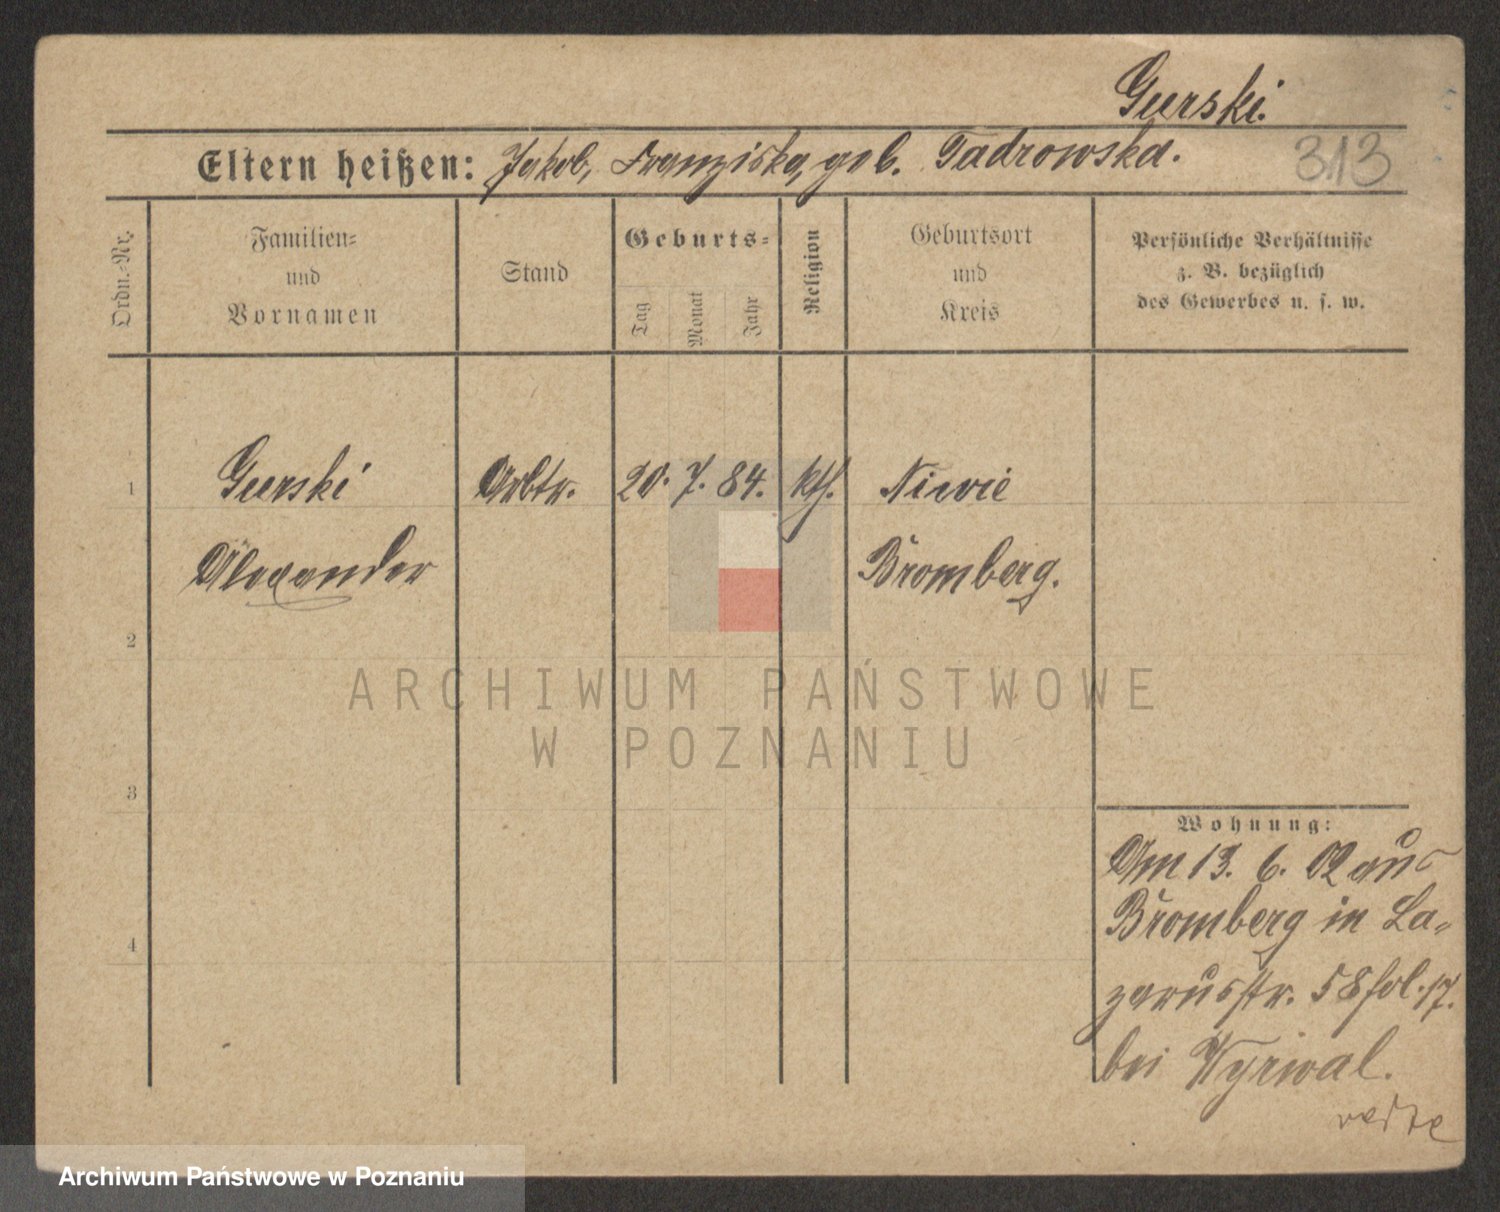 Gurski.
313
Eltern heißen: Jakob, Franziska, geb. Tadrowska.
Ordn.-Nr.
Familien-
und
Vornamen
Stand
Geburts-
Tag
Monat
Jahr
Religion
Geburtsort
und
Kreis
Persönliche Verhältnisse
z. B. bezüglich
des Gewerbes u. s. w.
1 Gurski Arbtr. 20. 7. 84. kth. Niwie
Alexander Bromberg.
2
ARCHIWUM PAŃSTWOWE
W POZNANIU
3
Wohnung:
Am 13. 6. 02 aus
Bromberg in La-
4
zarusstr. 58 fol. 17.
bei
Archiwum Państwowe w Poznaniu